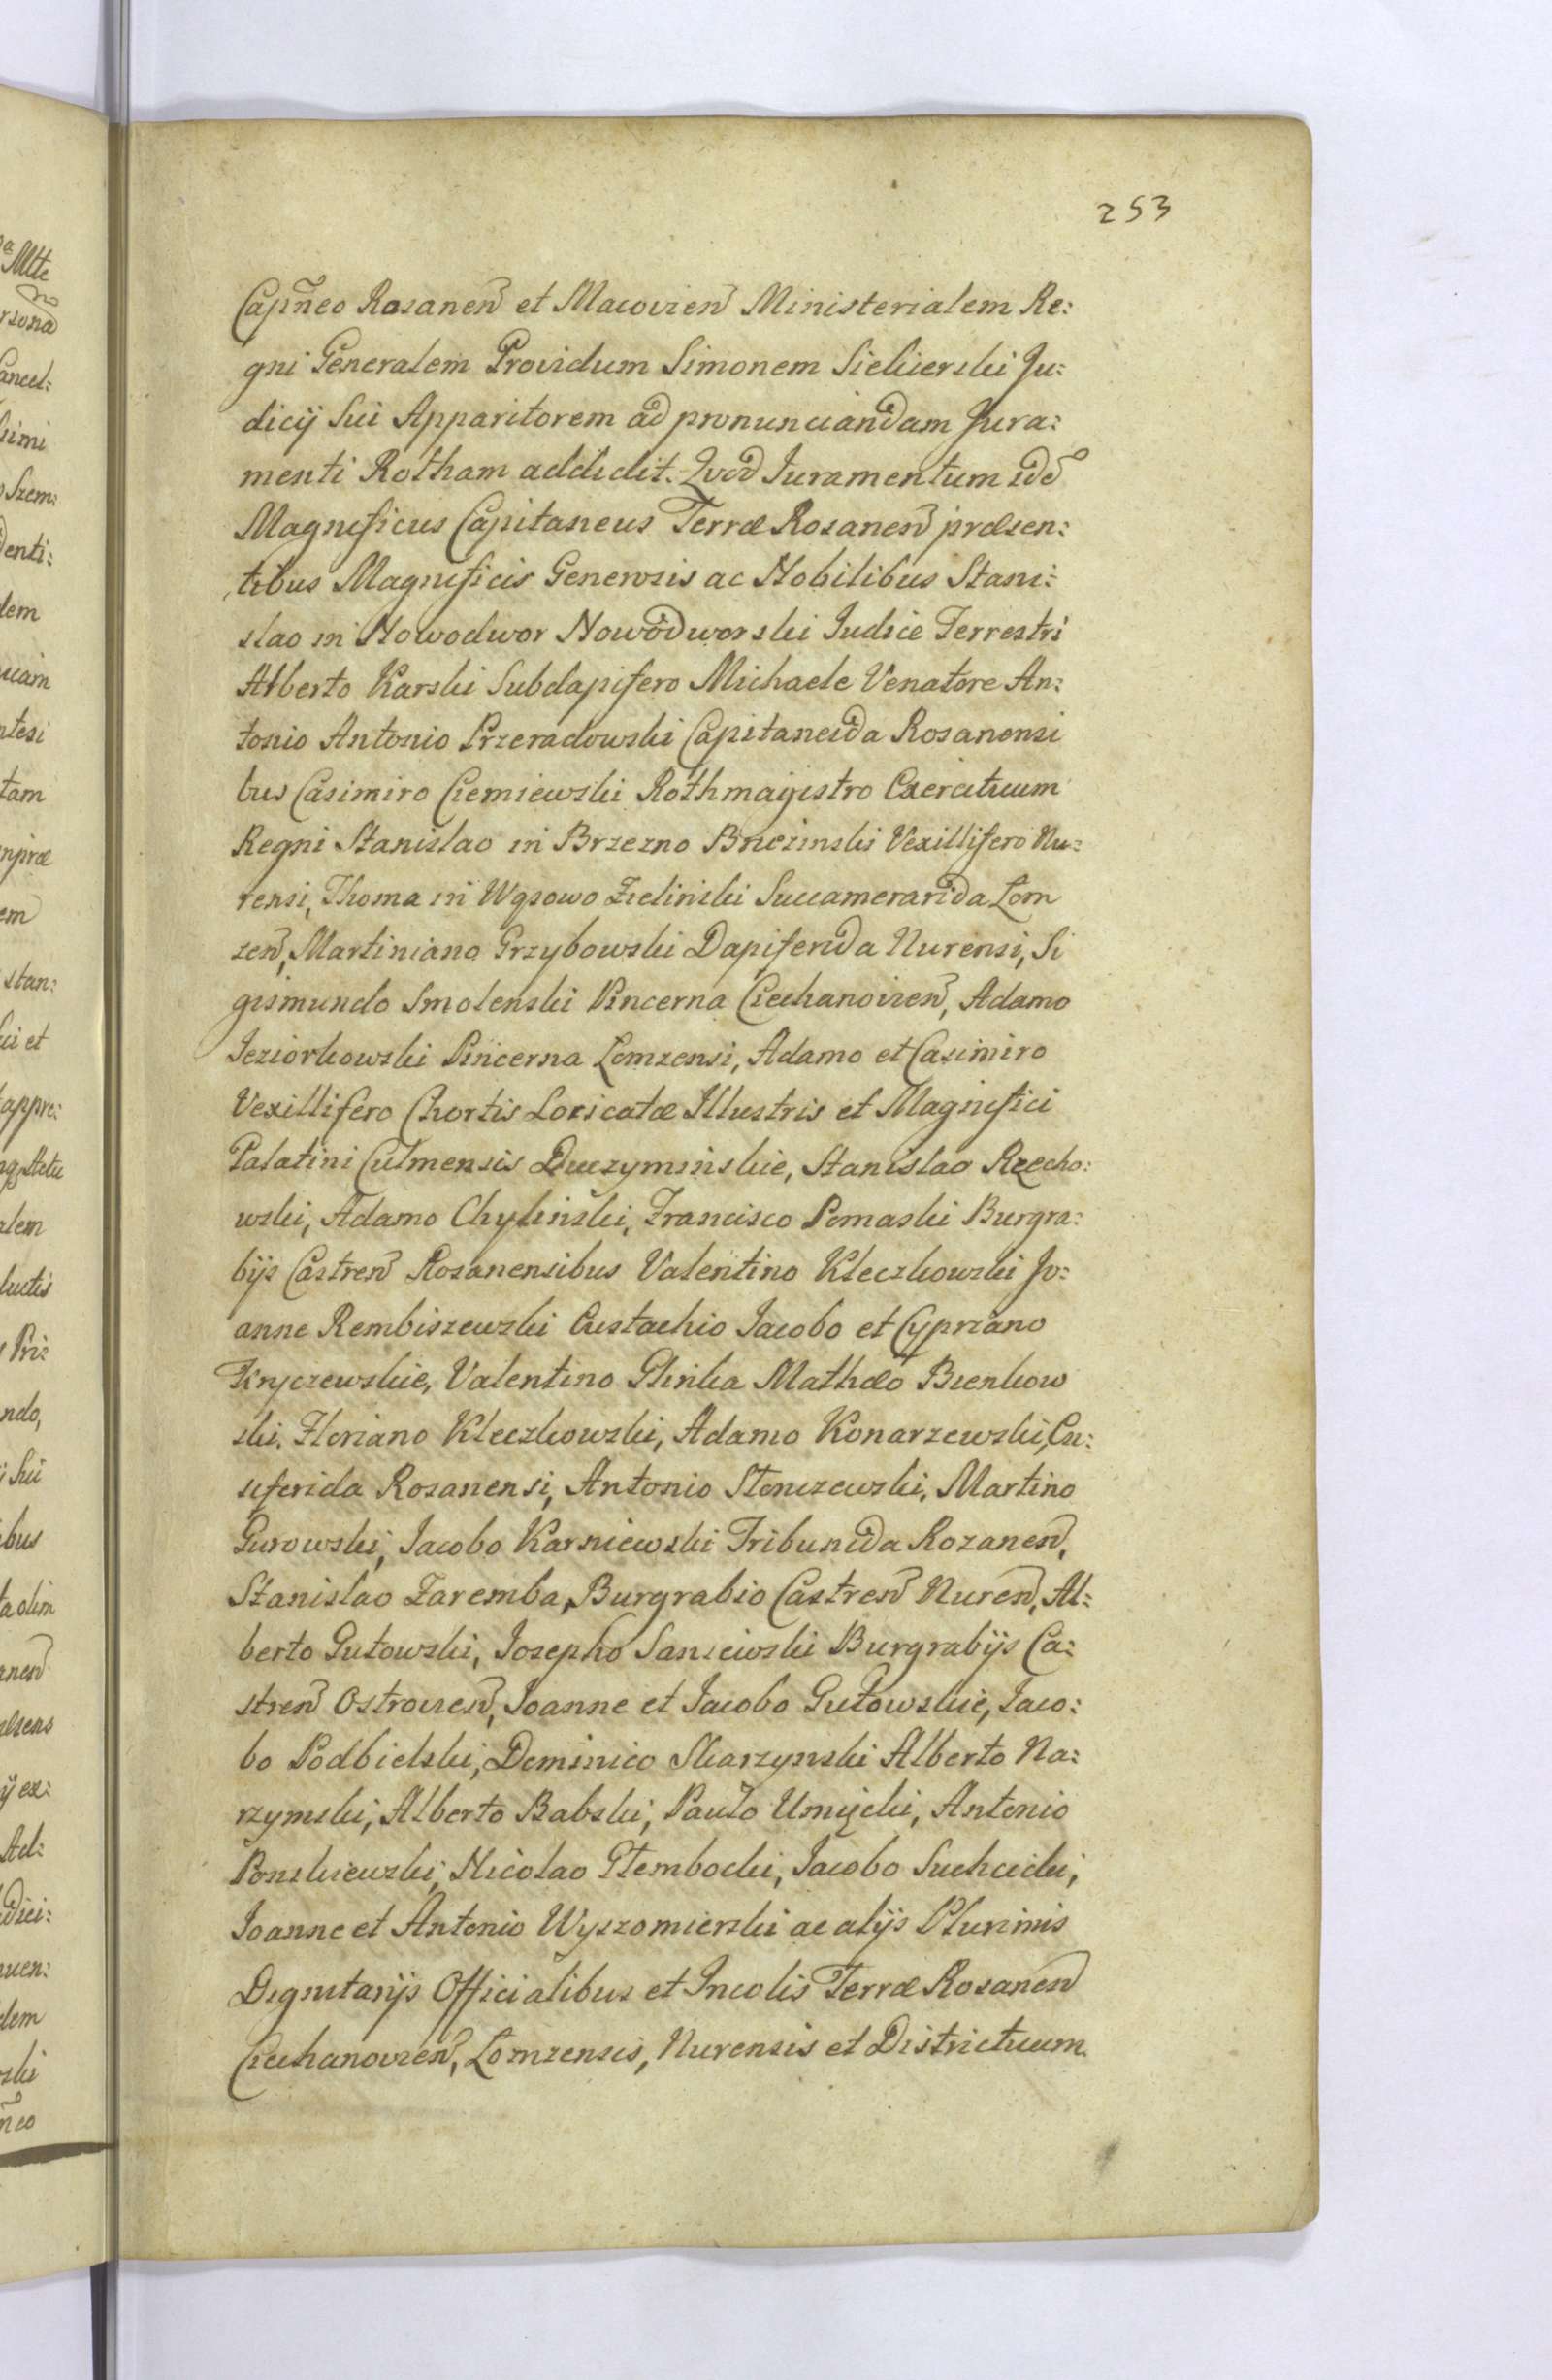 253
Capñeo Rosanen̄ et Macovien̄ Ministerialem Re:
gni Generalem Providum Simonem Siekierski Ju:
dicij Sui Apparitorem ad pronunciandam Jura:
menti Rotham addidit. Qvod Juramentum ide᷃
Magnificus Capitaneus Terræ Rosanen̄ præsen:
tibus Magnificis Generosis ac Nobilibus Stani:
slao in Nowodwor Nowodworski Judice Terrestri
Alberto Karski Subdapifero Michaele Venatore An:
tonio Antonio Przeradowski Capitaneida Rosanensi
bus Casimiro Ciemiewski Rothmagistro Exercituum
Regni Stanislao in Brzezno Brzezinski Vexillifero Nu:
rensi, Thoma in Wąsowo Zielinski Succamerarida Lom
zen̄, Martiniano Grzybowski Dapiferida Nurensi, Si
gismundo Smolenski Pincerna Ciechanovien̄, Adamo
Jeziorkowski Pincerna Lomzensi, Adamo et Casimiro
Vexillifero Chortis Loricatæ Illustris et Magnifici
Palatini Culmensis Duczyminskie, Stanislao Rzecho:
wski, Adamo Chylinski, Francisco Pomaski Burgra:
bijs Castren̄ Rosanensibus Valentino Kleczkowski Jo:
anne Rembiszewski Eustachio Jacobo et Cypriano
Kryczewskie, Valentino Glinka Mathæo Bienkow
ski, Floriano Kleczkowski, Adamo Konarzewski, En:
siferida Rosanensi, Antonio Morzewski, Martino
Gurowski, Jacobo Karniewski Tribunida Rozanen̄,
Stanislao Zaremba, Burgrabio Castren̄ Nuren̄, Al:
berto Gutowski, Josepho Saniewski Burgrabijs Ca:
stren̄ Ostrovien̄, Joanne et Jacobo Gutowskie, Jaco:
bo Podbielski, Dominico Skarzynski Alberto Na:
rzymski, Alberto Babski, Paulo Umięcki, Antonio
Ponikiewski, Nicolao Glembocki, Jacobo Suchcicki,
Joanne et Antonio Wyszomierski ac alijs Plurimis
Dignitarijs Officialibus et Incolis Terræ Rosanen̄
Ciechanovien̄, Lomzensis, Nurensis et Districtuum